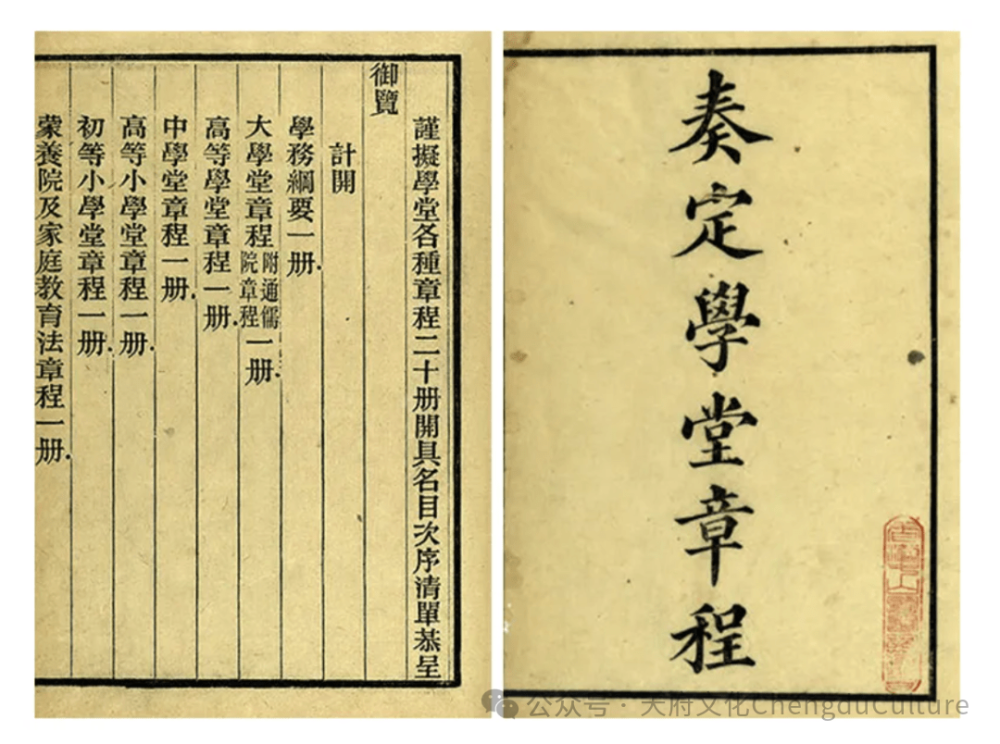 奏定學堂章程
謹擬學堂各種章程二十册開具名目次序清單恭呈
御覽
計開
學務綱要一册
大學堂章程附通儒院章程一册
高等學堂章程一册
中學堂章程一册
高等小學堂章程一册
初等小學堂章程一册
蒙養院及家庭教育法章程一册
公众号·天府文化ChengduCulture